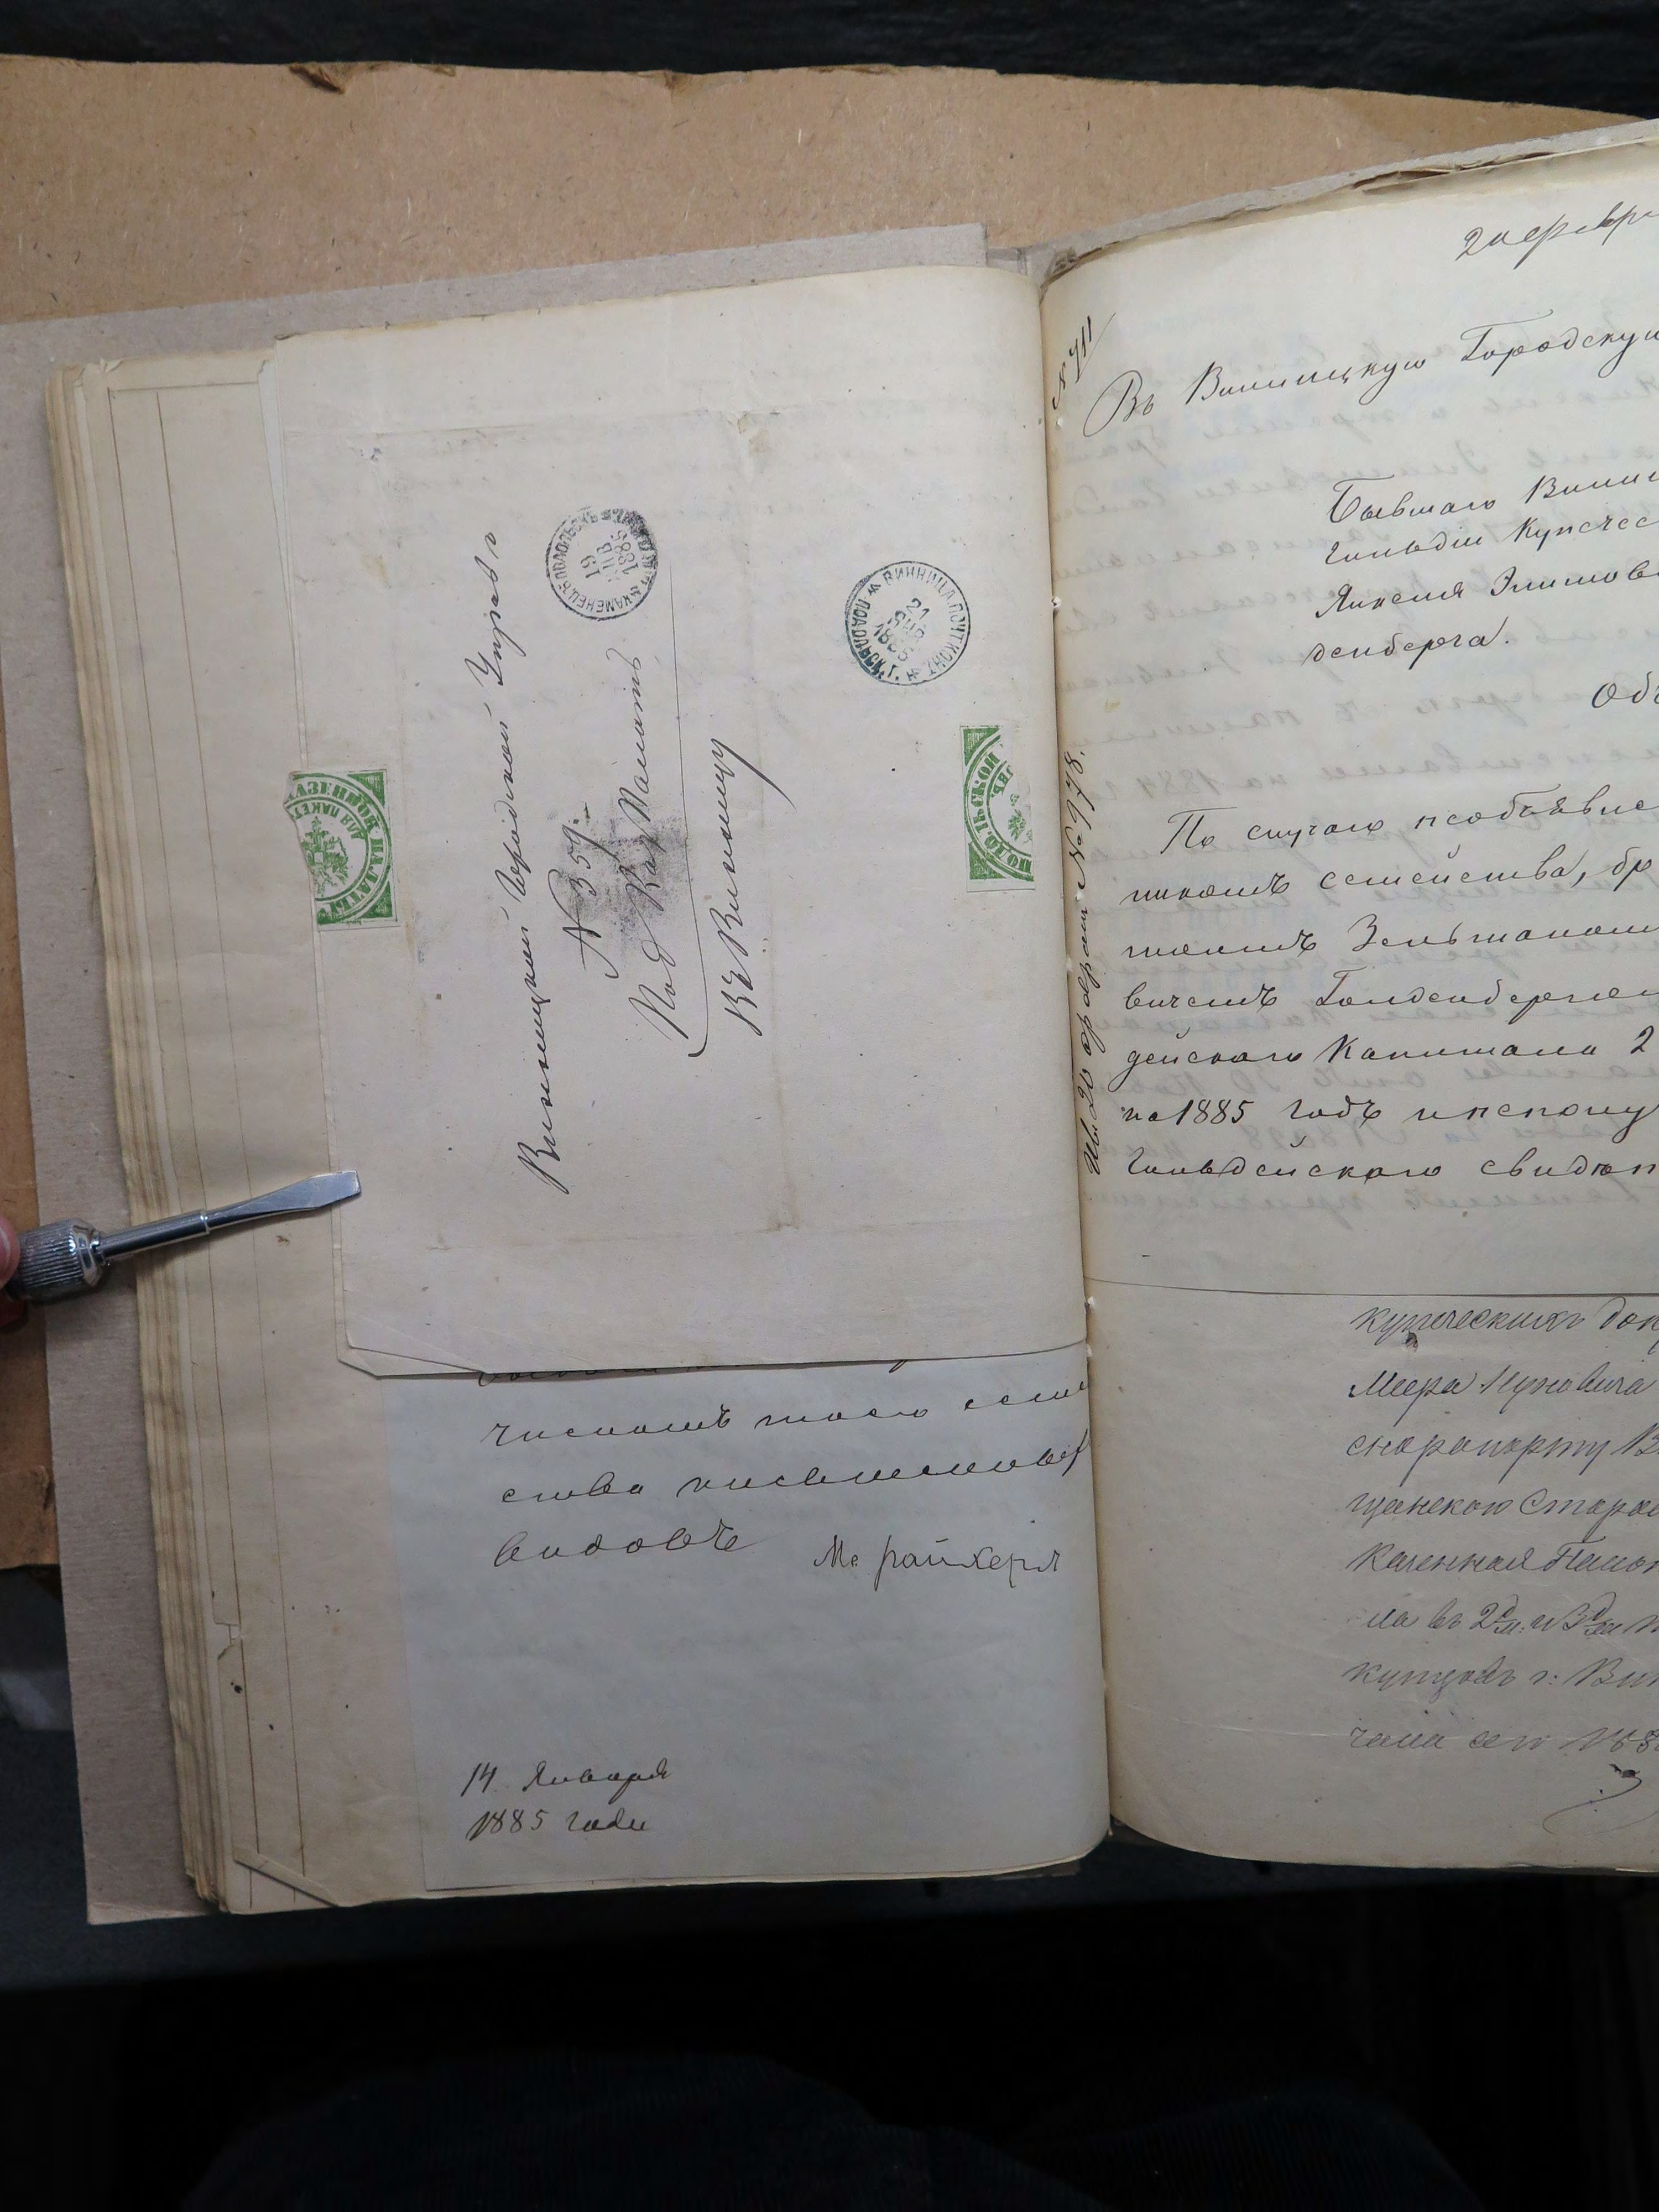 Винницкой Городской Управѣ
№ 359.
Под. Каз. Палаты
Въ Винницу
КАМЕНЕЦЪ ПОДОЛЬСК.
19
ЯНВ
1885
ВИННИЦА ПОЧТ. КОН.
ПОДОЛЬСК. Г.
21
ЯНВ
1885
КАЗЕННОЙ ПАЛАТЫ
ДЛЯ ПАКЕТ
ПОДОЛЬСКОЙ
числомъ моего семе
ства письменныхъ
видовъ
14 Января
1885 года
20 февр
№ 711
Въ Винницкую Городскую
Бывшаго Винни
гильдіи Купечес
Янкеля Элимов
денберга.
Объ
Ив. 20 феврал № 978.
По случаю необъявле
никомъ семейства, бр
томъ Зельманомъ
вичемъ Голденбергом
дейскаго Капитала 2
на 1885 годъ и неполу
Гильдейскаго свидѣт
купеческихъ док
Меера
рапорту В
щанскаго Старос
Казенная Палат
ла въ 2й и 3й
купцовъ г. Вин